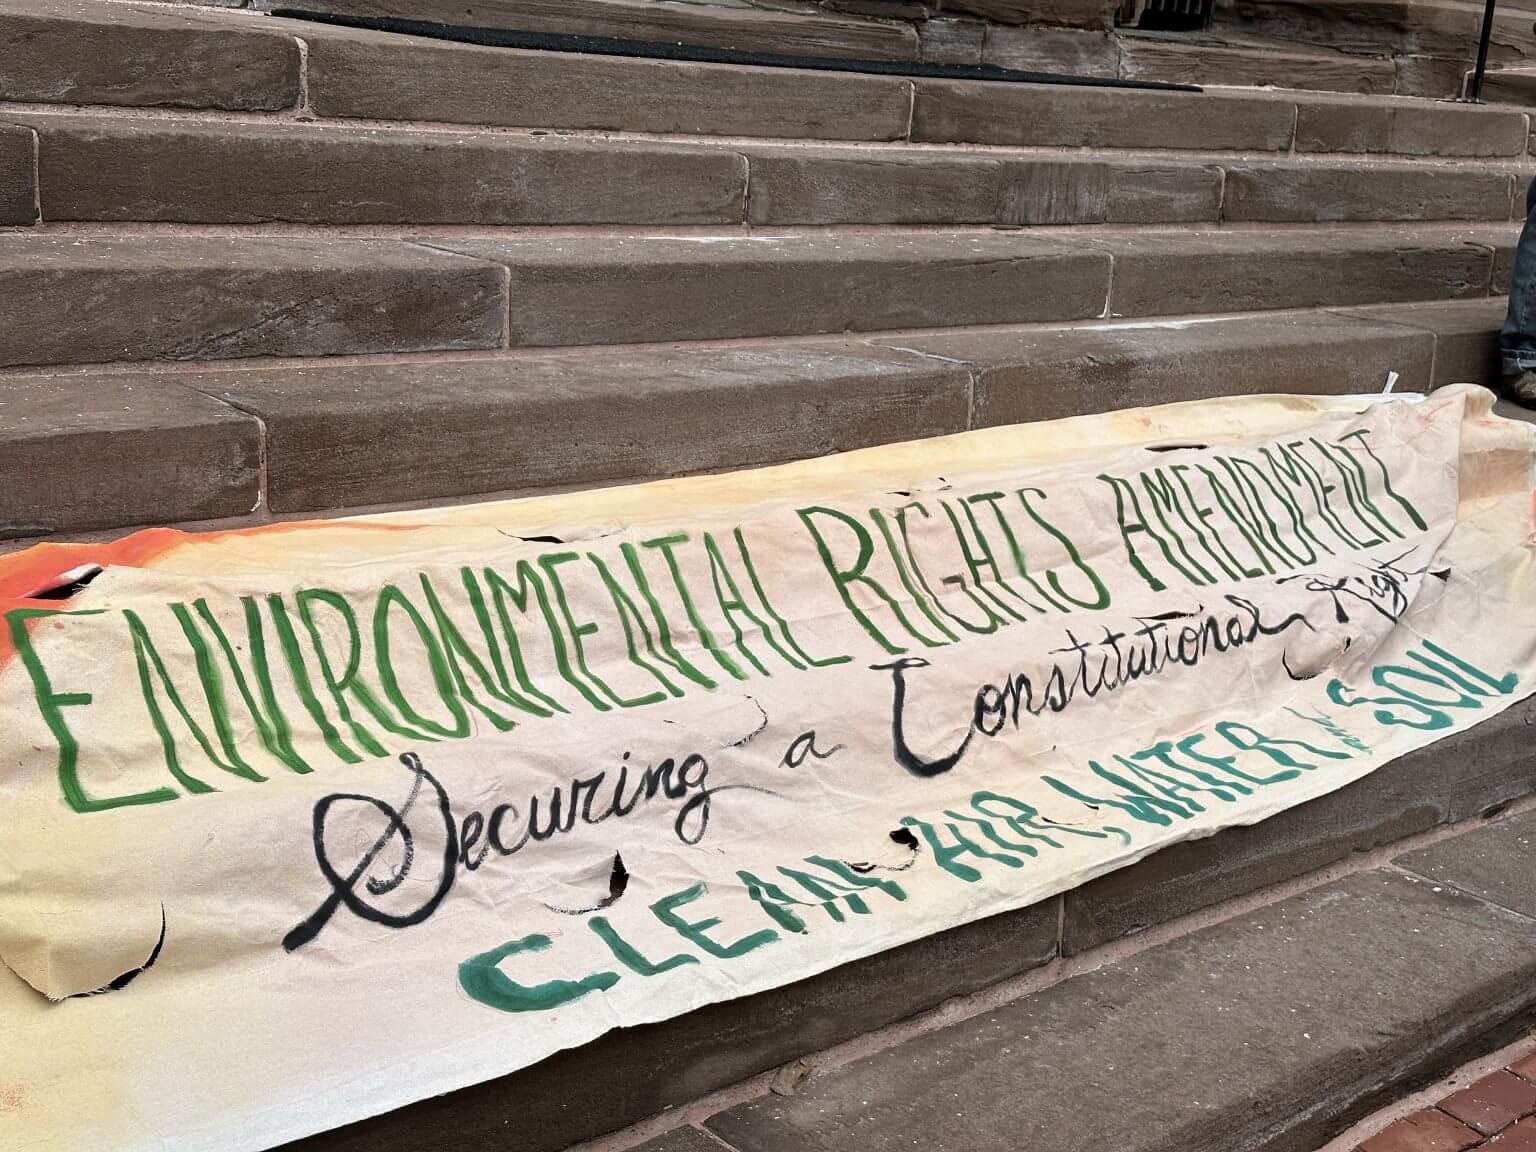 ENVIRONMENTAL RIGHTS AMENDMENT
Securing a Constitutional Right
CLEAN AIR, WATER & SOIL